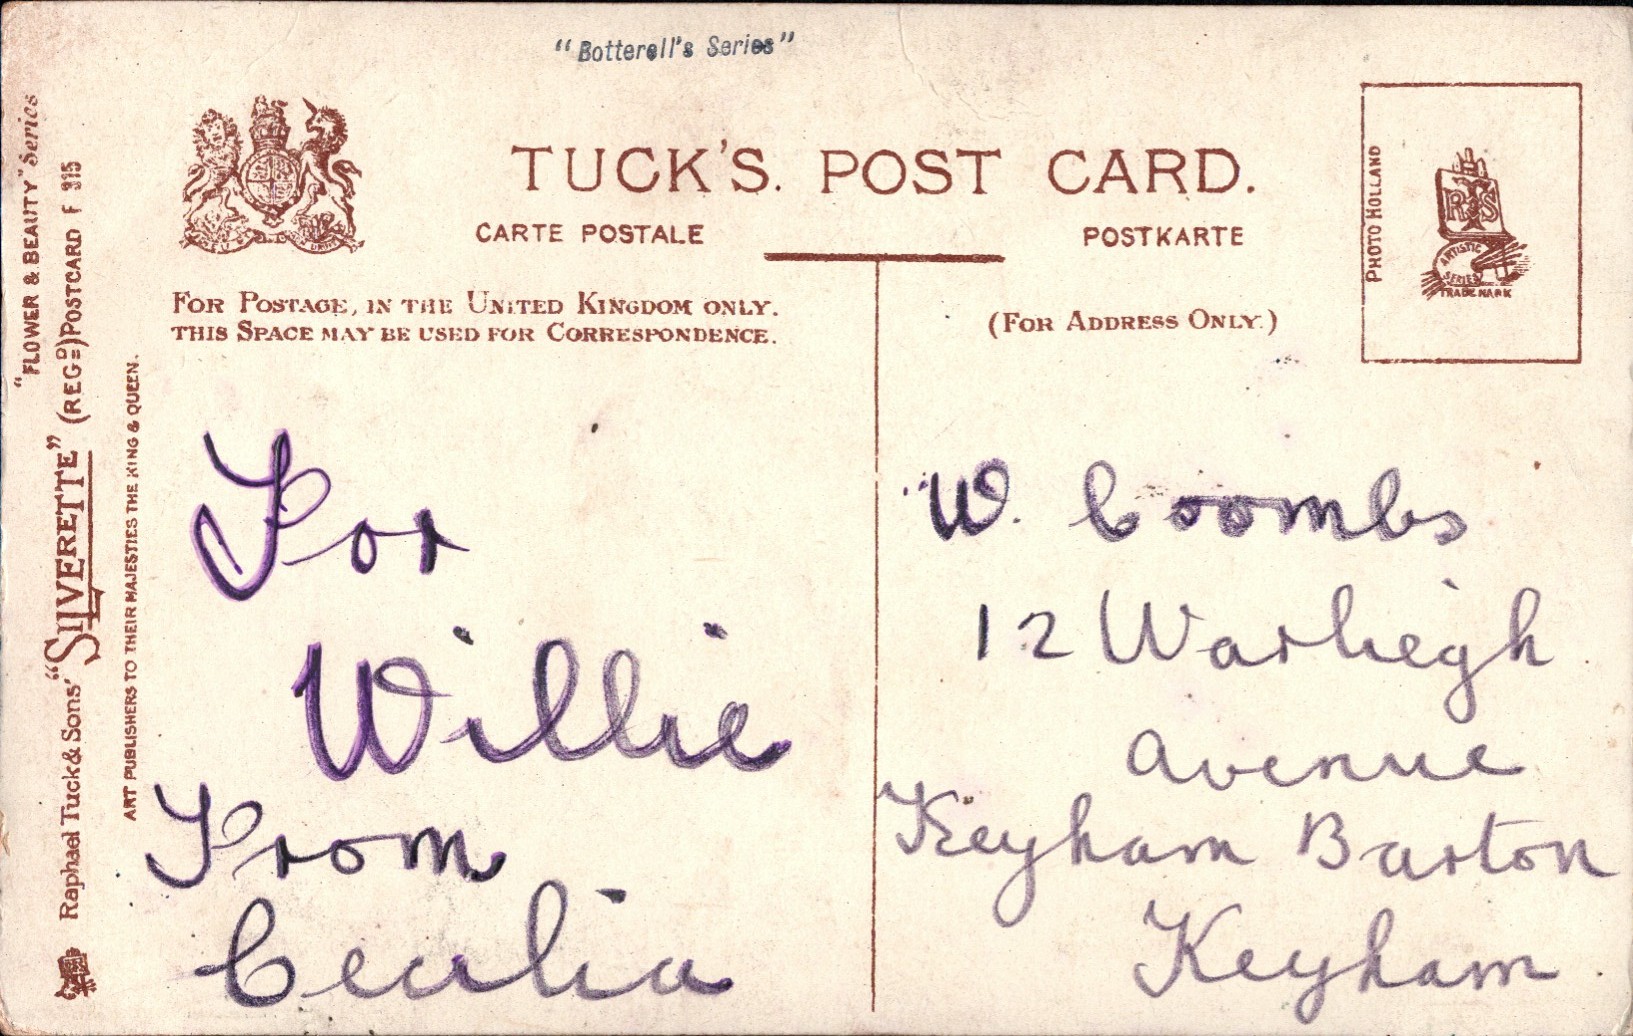 "Botterell's Series"
TUCK'S. POST CARD.
CARTE POSTALE
POSTKARTE
FOR POSTAGE, IN THE UNITED KINGDOM ONLY.
THIS SPACE MAY BE USED FOR CORRESPONDENCE.
(FOR ADDRESS ONLY.)
PHOTO HOLLAND
R T S
ARTISTIC
SERIES
TRADE MARK
"FLOWER & BEAUTY" Series
Raphael Tuck & Sons' "SILVERETTE" (REGD) POSTCARD F 315
ART PUBLISHERS TO THEIR MAJESTIES THE KING & QUEEN.
For
Willie
From
Cecilia
W. Coombs
12 Warleigh
avenue
Keyham Barton
Keyham